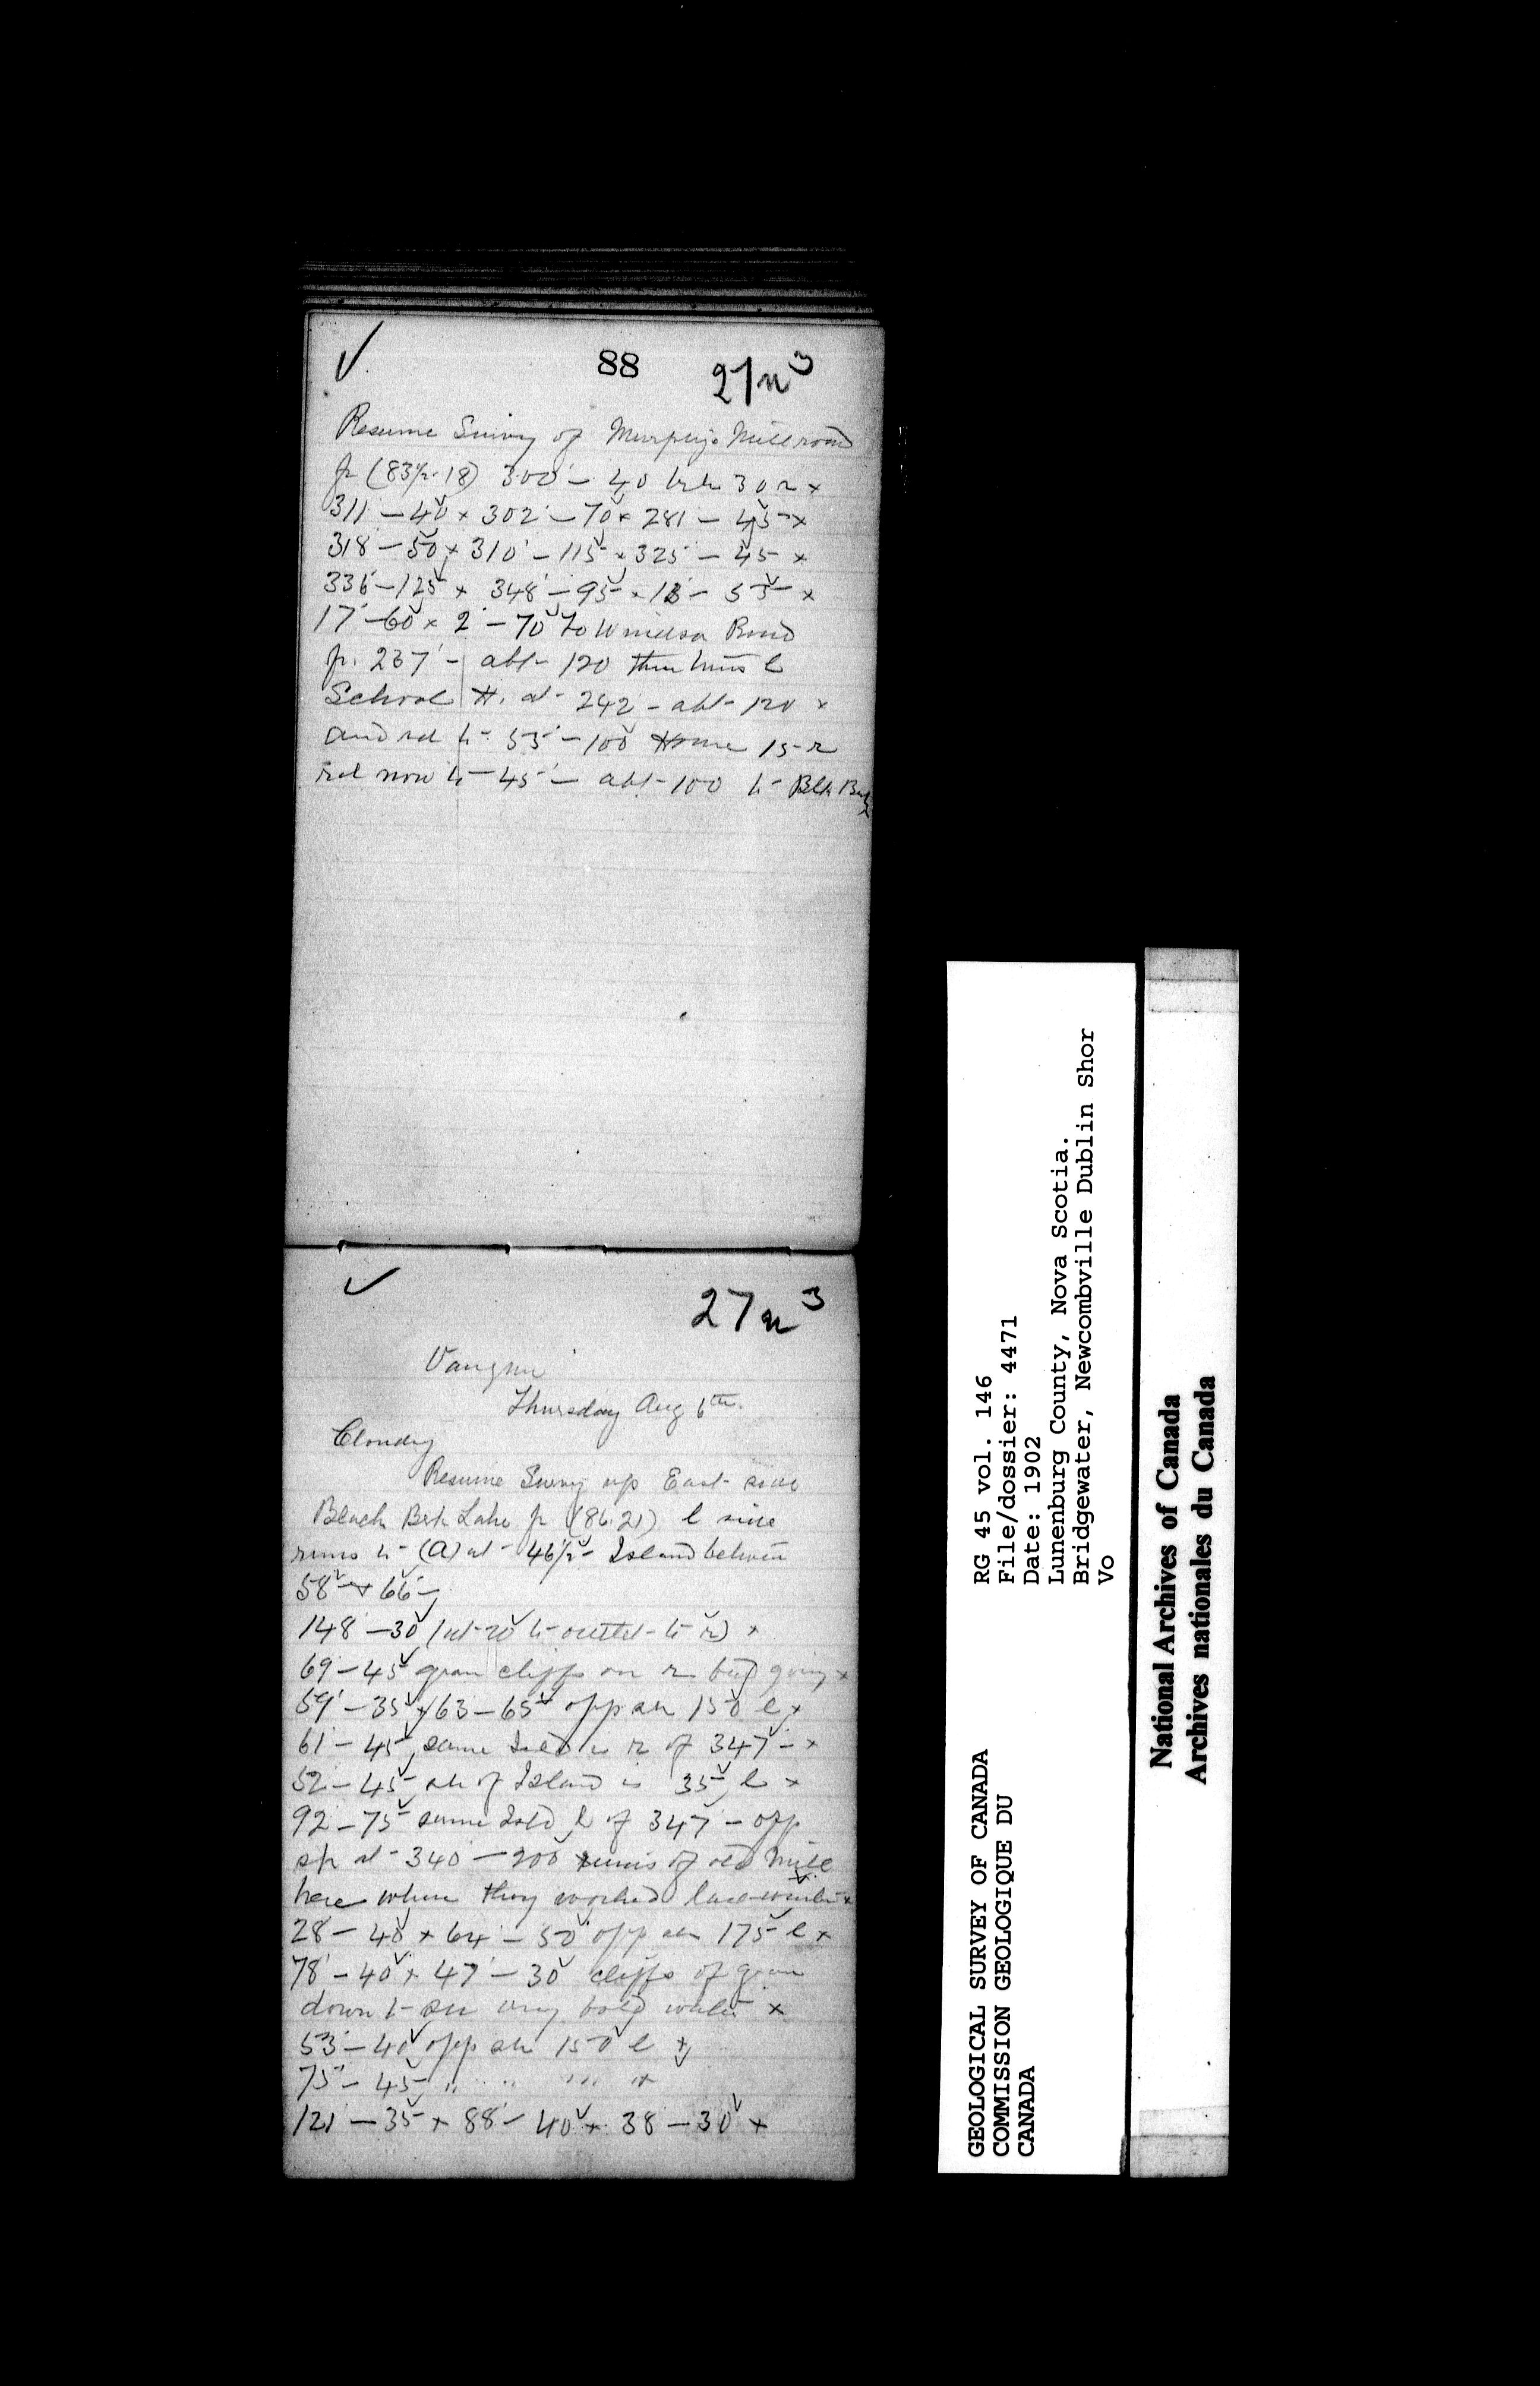 88
27n³
Resume Survey of Murphy's Mill road
fr (83½.18) 300' - 40 30 r x
311 - 40 x 302' - 70 x 281 - 45 x
318 - 50 x 310' - 115 x 325 - 45 x
336 - 125 x 348' - 95 x - 55 x
17' - 60 x 2' - 70 to Windsor Road
fr. 237' - abt 120 turns l
School H. at 242 - abt 120 x
and rd 53' - 100 House 15 r
rd now 45 - abt 100 Blk
27n³
Vaughn
Thursday Aug 6th.
Cloudy
Resume Survey up East side
Black Brk Lake fr (86.21) l side
runs to (A) at 46½ Island between
58 + 66
148' - 30 (at 20 to outlet to r) x
69 - 45 gran cliffs on r going x
59' - 35 x 63 - 65 opp sh 150 l x
61 - 45 same Isld is r of 347 x
52 - 45 sh of Island is 35 l x
92 - 75 same Isld l of 347 - opp
sh at 340 - 200 ruins of old Mill
here where they worked last winter x
28 - 40 x 64' - 50 opp sh 175 l x
78' - 40 x 47' - 30 cliffs of gran
down to sh very bold water x
53' - 40 opp sh 150 l x
75' - 45 " " " " x
121 - 35 x 88' - 40 x 38 - 30 x
GEOLOGICAL SURVEY OF CANADA
COMMISSION GEOLOGIQUE DU
CANADA
RG 45 vol. 146
File/dossier: 4471
Date: 1902
Lunenburg County, Nova Scotia.
Bridgewater, Newcombville Dublin Shor
Vo
National Archives of Canada
Archives nationales du Canada